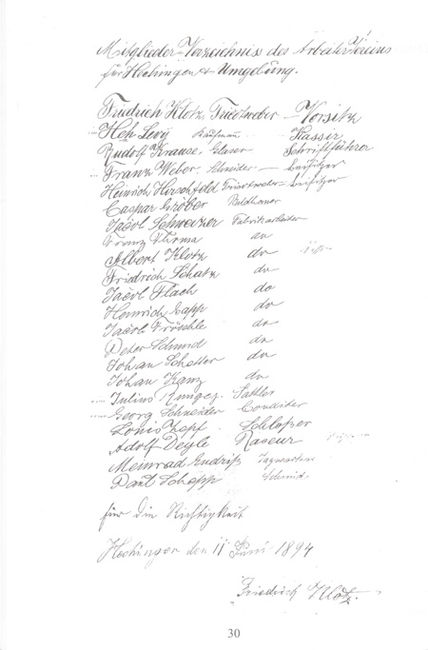 Mitglieder-Verzeichnis des Arbeiter Vereins
für Hechingen & Umgebung.
Friedrich Klotz, Tricotweber – Vorsitz
Hch Levy Kaufman Kassir
Rudolf Krause, Glaser – Schriftführer
Franz Weber Schneider – Beisitzer
Heinrich Hirschfeld Tricotweber – Beisitzer
Caspar Gröber Bildhauer
Jacob Schweizer Fabrikarbeiter
Franz do
Albert Klotz do
Friedrich Schatz do
Jacob Flach do
Heinrich Lapp do
Jacob Fröschle do
Peter Schmid do
Johan Schetter do
Johan Kanz do
Julius Sattler
Georg Schneider Conditer
Louis Zopf Schloßer
Adolf Deyle Raseur
Meinrad Endriß
Paul Schopp Schmid
für die Richtigkeit
Hechingen den 11 Juni 1894
Friedrich Klotz.
30